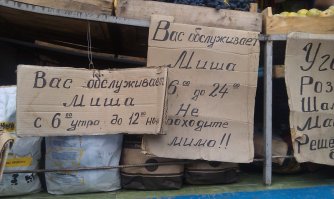 Вас обслуживает
Миша
с 6 00 утра до 12 00 ноч
Вас обслуживает
Миша
6 00 до 24 00
Не
проходите
мимо!!
Уг
Роз
Шам
Ма
Реше